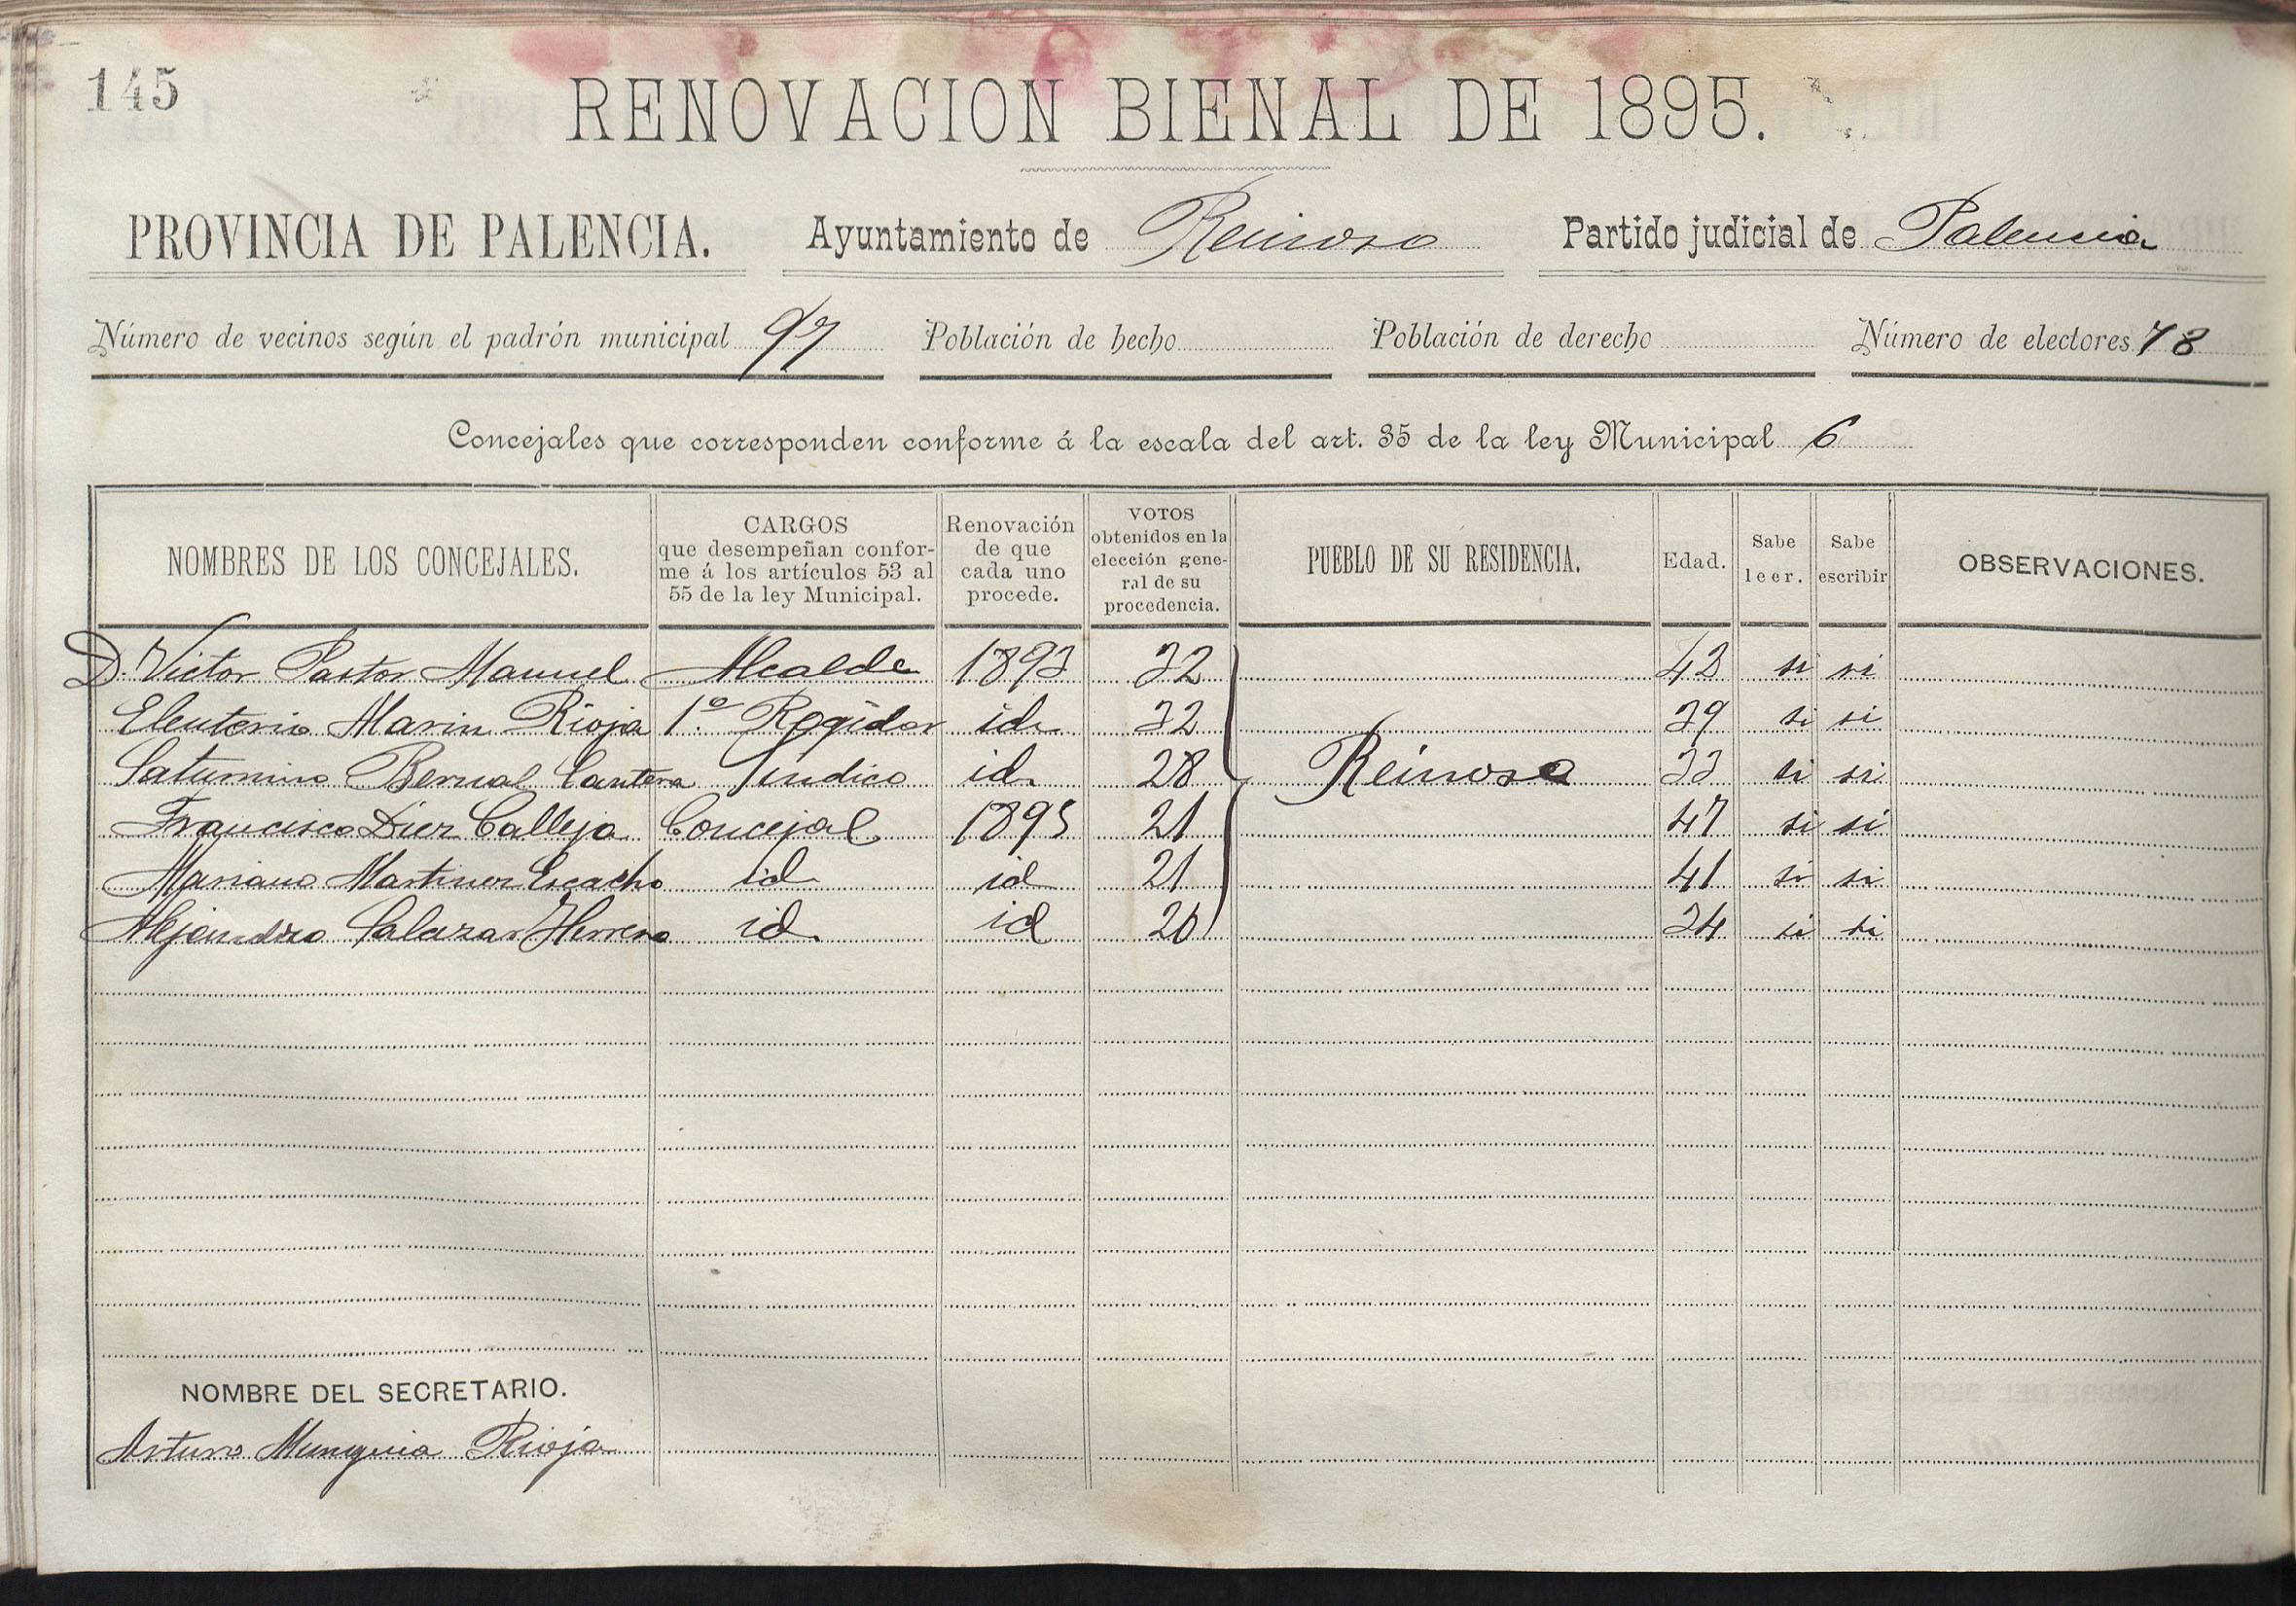 145
RENOVACION BIENAL DE 1895.
PROVINCIA DE PALENCIA. Ayuntamiento de Reinoso Partido judicial de Palencia
Número de vecinos según el padrón municipal 97 Población de hecho Población de derecho Número de electores 78
Concejales que corresponden conforme á la escala del art. 35 de la ley Municipal 6
NOMBRES DE LOS CONCEJALES. CARGOS que desempeñan conforme á los artículos 53 al 55 de la ley Municipal. Renovación de que cada uno procede. VOTOS obtenidos en la elección general de su procedencia. PUEBLO DE SU RESIDENCIA. Edad. Sabe leer. Sabe escribir OBSERVACIONES.
D. Victor Pastor Manuel Alcalde 1893 32 43 si si
Eleuterio Marin Rioja 1.º Regidor id. 32 39 si si
Saturnino Bernal Cantera Sindico id. 28 Reinoso 33 si si
Francisco Diez Calleja Concejal 1895 21 47 si si
Mariano Martinez Escacho id id 21 41 si si
Alejandro Salazar Herrero id. id 20 34 si si
NOMBRE DEL SECRETARIO.
Arturo Munguia Rioja